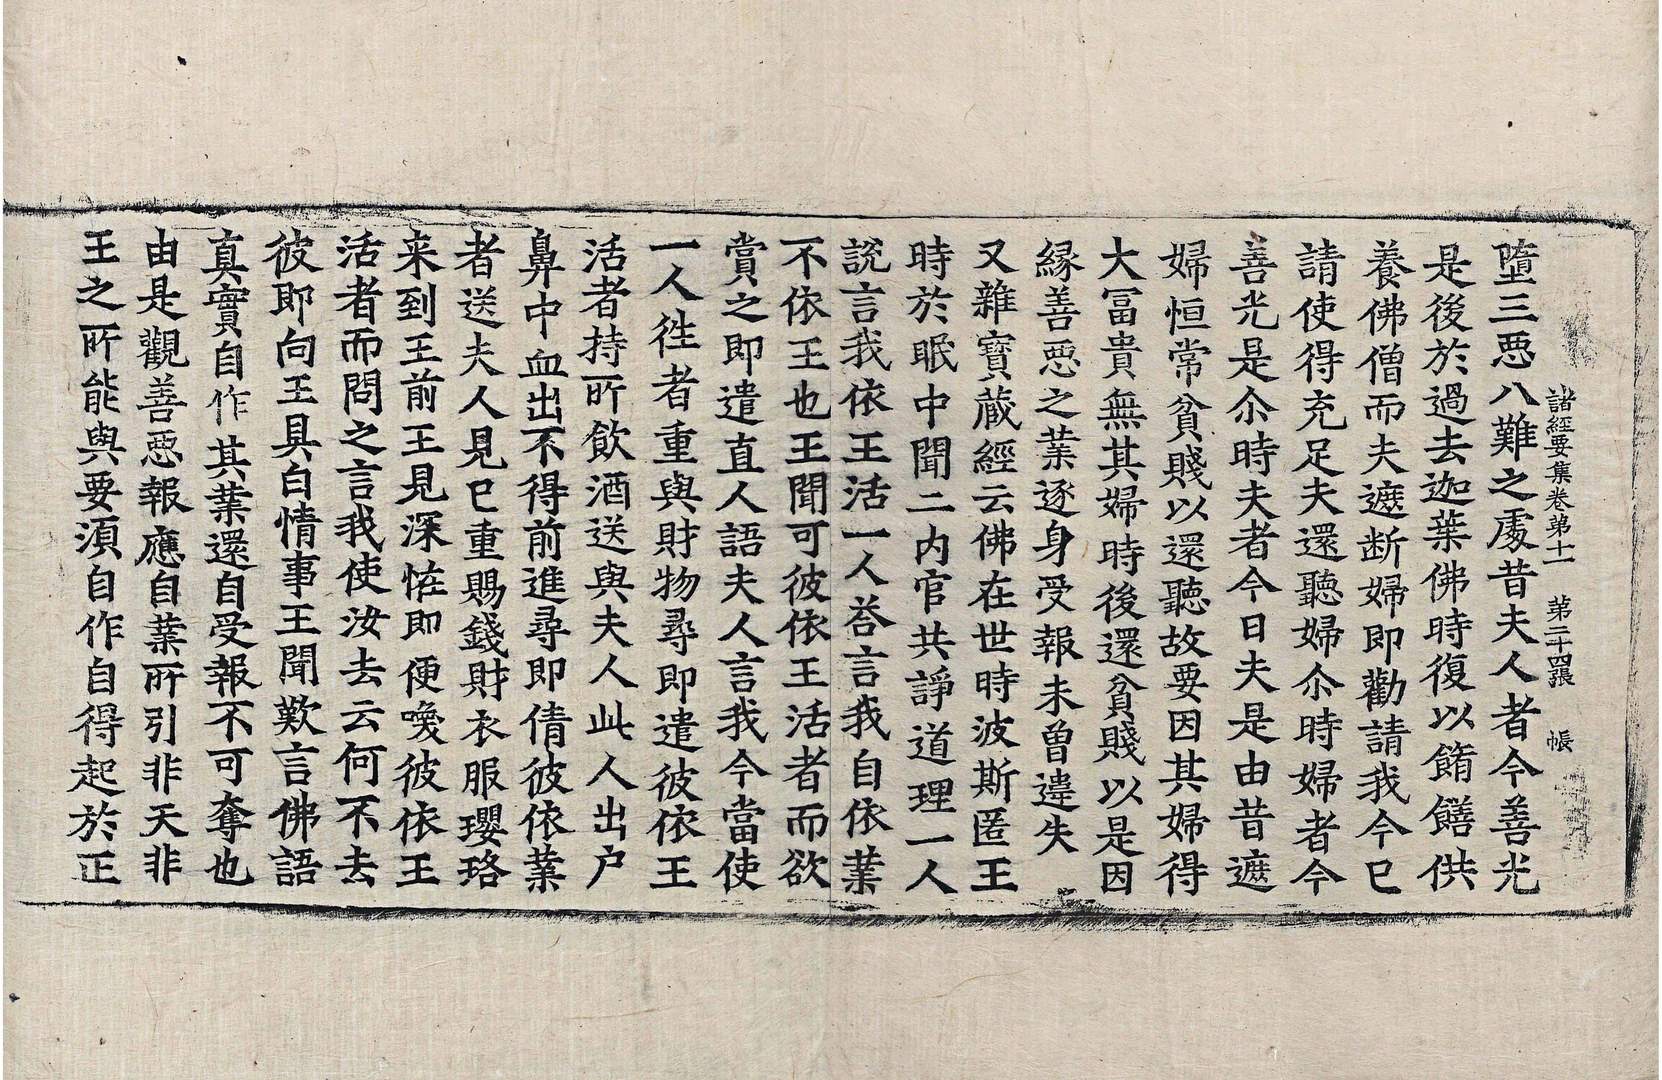 諸經要集卷第十一　第二十四張　帳
墮三惡八難之處昔夫人者今善光
是後於過去迦葉佛時復以餚饍供
養佛僧而夫遮断婦即勸請我今已
請使得充足夫還聽婦尒時婦者今
善光是尒時夫者今日夫是由昔遮
婦恒常貧賤以還聽故要因其婦得
大冨貴無其婦時後還貧賤以是因
縁善惡之業逐身受報未曽違失
又雜寶藏經云佛在世時波斯匿王
時於眠中聞二内官共諍道理一人
説言我依王活一人荅言我自依業
不依王也王聞可彼依王活者而欲
賞之即遣直人語夫人言我今當使
一人徃者重與財物尋即遣彼依王
活者持所飲酒送與夫人此人出户
鼻中血出不得前進尋即倩彼依業
者送夫人見已重賜錢財衣服瓔珞
来到王前王見深恠即便喚彼依王
活者而問之言我使汝去云何不去
彼即向王具白情事王聞歎言佛語
真實自作其業還自受報不可奪也
由是觀善惡報應自業所引非天非
王之所能與要須自作自得起於正